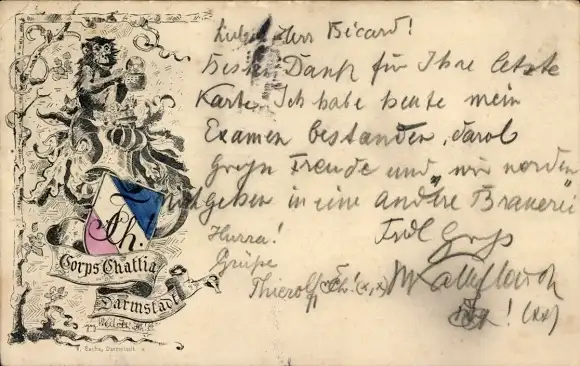 Lieber Herr Bicard!
Besten Dank für Ihre letzte
Karte. Ich habe heute mein
Examen bestanden, darob
große Freude und wir werden
gehen in eine andere Brauerei
Hurra!
Grüße
Frdl Gruß
Thierolf (x,x)
(xx)
Th.
Corps Chattia
Darmstadt
Darmstadt